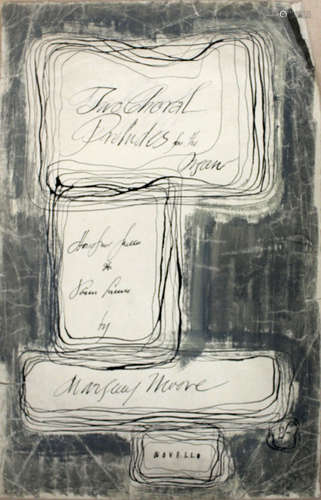 Two Choral
Preludes for the
Organ
by
Margery Moore
NOVELLO